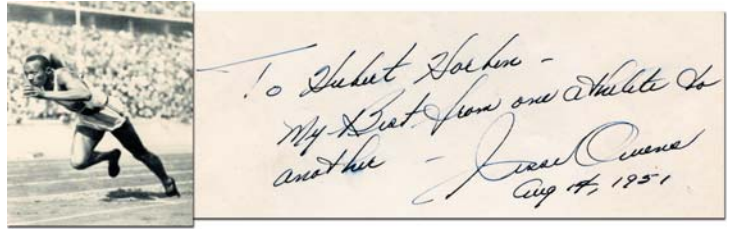 To Hubert -
My Best from one athelete to
another - Jesse Owens
Aug 14, 1951